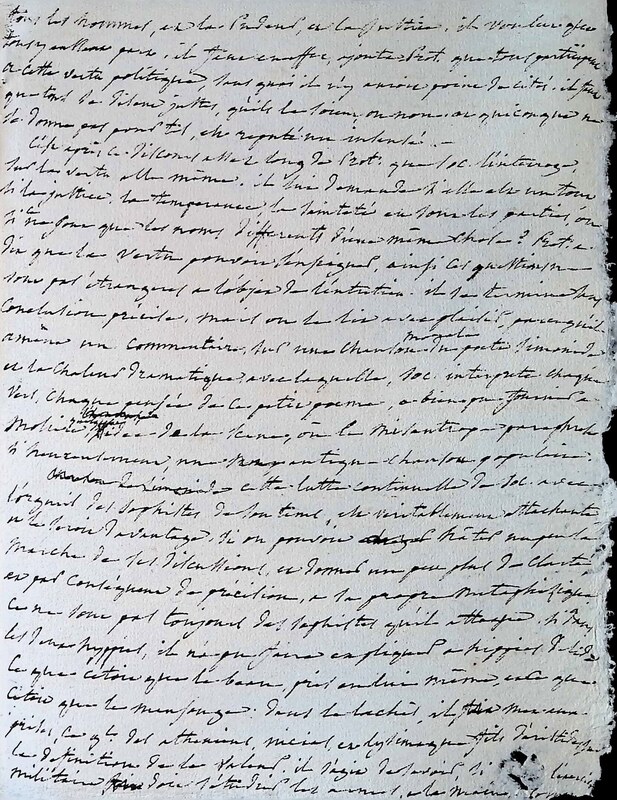 tous les hommes, et la Pudeur, et la justice. il voulut que
tous y eussent part. il faut en effet, ajoute Prot. que tous participent
a cette vertu politique, sans quoi il n'y auroit point de cités. il faut
que tous se disent justes, qu'ils le soient ou non. or quiconque ne
se donne pas pour tel, est reputé un insensé. —
C'est après ce discours assez long de Prot. que Soc. l'interroge,
sur la vertu elle même. il lui demande si elle est un tout
si la justice, la temperance la sainteté en sont les parties ou
si ce ne sont que les noms differents d'une même chose? Prot. a
dit que la vertu pouvoit s'enseigner, ainsi ces questions ne
sont pas étrangeres a l'objet de l'entretien. il se termine sans
Conclusion précise, mais on le lit avec plaisir, parce qu'il
amène un commentaire, sur une chanson morale du poete Simonide
et la chaleur dramatique avec laquelle, Soc. interprete chaque
vers, chaque pensée de ce petit poeme, a bien pu fournir a
Moliere l'idée de la scene, où le Misantrope paraphrase
si heureusement, une antique chanson populaire.
cette lutte continuelle de Soc. avec
l'orgueil des Sophistes de son tems, est veritablement attachante
et le seroit davantage, si on pouvoit hâter un peu la
marche de ses discussions, et donner un peu plus de clarté
et par conséquent de précision, a sa propre metaphysique
ce ne sont pas toujours des sophistes qu'il attaque. si dans
les deux hyppias, il n'a pu faire expliquer a hippias d'Elide
ce que c'etoit que le beau, pris en lui même, et ce que
c'etoit que le mensonge. dans le lachès, il met aux
prises, ce gl. des atheniens, nicias, et lysimaque fils d'aristide sur
la definition de la valeur, il s'agit de savoir, si l'exercice
militaire doit s'etendre les armes, a la main